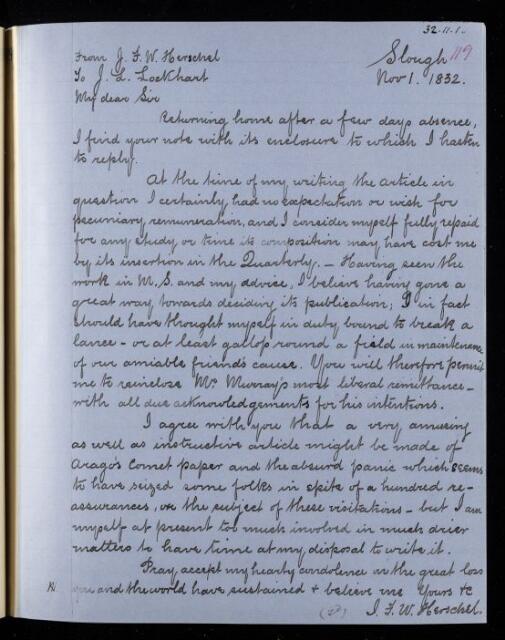 32.11.1.
From J. F. W. Herschel
Slough 119
To J. L. Lockhart
Nov 1. 1832.
My dear Sir
Returning home after a few days absence,
I find your note with its enclosure to which I hasten
to reply.
At the time of my writing the article in
question I certainly had no expectation or wish for
pecuniary remuneration, and I consider myself fully repaid
for any study or time its composition may have cost me
by its insertion in the Quarterly. — Having seen the
work in M.S. and my advice, I believe having gone a
great way towards deciding its publication; I in fact
should have thought myself in duty bound to break a
lance – or at least gallop round a field in maintenance
of our amiable friend's cause. You will therefore permit
me to reinclose Mr. Murray's most liberal remittance –
with all due acknowledgements for his intentions.
I agree with you that a very amusing
as well as instructive article might be made of
Arago's Comet paper and the absurd panic which seems
to have seized some folks in spite of a hundred re-
assurances, on the subject of these visitations – but I am
myself at present too much involved in much drier
matters to have time at my disposal to write it.
Pray accept my hearty condolence in the great loss
you and the world have sustained & believe me Yours &c
J. F. W. Herschel.